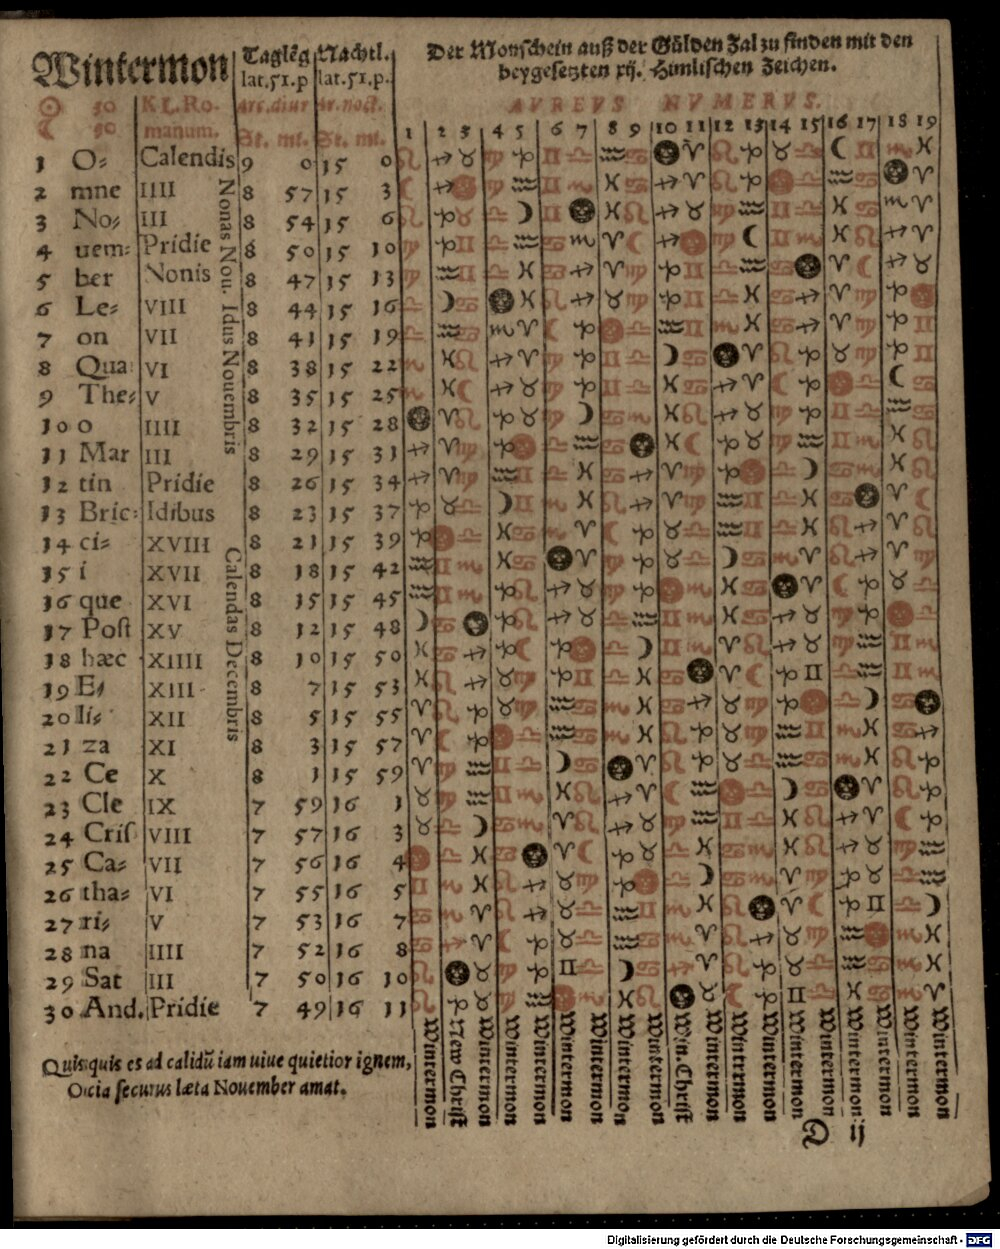 Wintermon
Taglẽg Nachtl.
lat.51.p lat.51.p.
Der Monschein auß der Gülden Zal zu finden mit den
beygesetzten xij. Himlischen Zeichen.
☉ 30 KL.Ro- Arc.diur Ar.noct. AVREVS NVMERVS.
☾ 30 manum. St. mi. St. mi.
1 2 3 4 5 6 7 8 9 10 11 12 13 14 15 16 17 18 19
1 O⸗ Calendis 9 0 15 0
2 mne IIII 8 57 15 3
3 No⸗ III 8 54 15 6
4 uem⸗ Pridie 8 50 15 10
5 ber Nonis 8 47 15 13
6 Le⸗ VIII 8 44 15 16
7 on VII 8 41 15 19
8 Qua⸗ VI 8 38 15 22
9 The⸗ V 8 35 15 25
10 o IIII 8 32 15 28
11 Mar III 8 29 15 31
12 tin Pridie 8 26 15 34
13 Bric⸗ Idibus 8 23 15 37
14 ci⸗ XVIII 8 21 15 39
15 i XVII 8 18 15 42
16 que XVI 8 15 15 45
17 Post XV 8 12 15 48
18 hæc XIIII 8 10 15 50
19 E⸗ XIII 8 7 15 53
20 li⸗ XII 8 5 15 55
21 za XI 8 3 15 57
22 Ce X 8 1 15 59
23 Cle IX 7 59 16 1
24 Cris VIII 7 57 16 3
25 Ca⸗ VII 7 56 16 4
26 tha⸗ VI 7 55 16 5
27 ri⸗ V 7 53 16 7
28 na IIII 7 52 16 8
29 Sat III 7 50 16 10
30 And. Pridie 7 49 16 11
Nonas Nou. Idus Nouembris
Calendas Decembris
Wintermon
New Christ
Wintermon
Wintermon
Wintermon
Wintermon
Wintermon
Wintermon
Wintermon
Win.Christ
Wintermon
Wintermon
Wintermon
Wintermon
Wintermon
Wintermon
Wintermon
Wintermon
Wintermon
Quisquis es ad calidũ iam uiue quietior ignem,
Ocia securus læta Nouember amat.
D ij
Digitalisierung gefördert durch die Deutsche Forschungsgemeinschaft - DFG